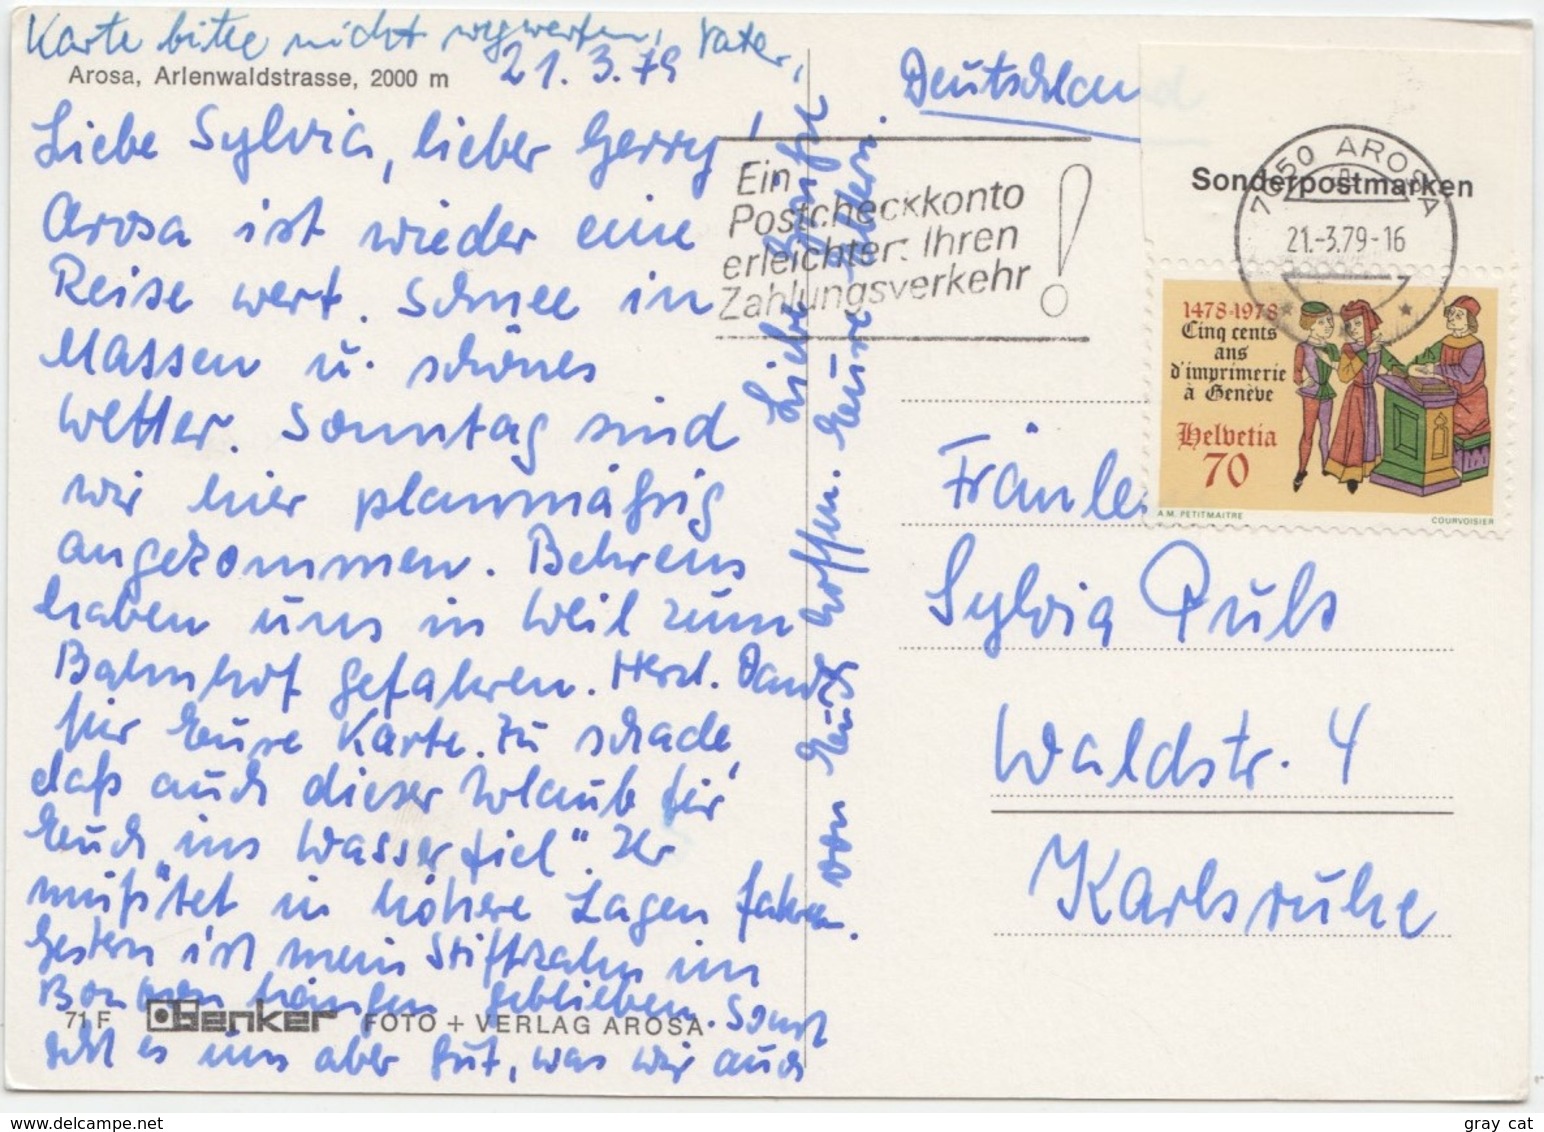 Karte bitte nicht wegwerfen, Vater,
Arosa, Arlenwaldstrasse, 2000 m
21.3.79
Liebe Sylvia, lieber Gerry!
Arosa ist wieder eine
Reise wert. Schnee in
Massen u. schönes
Wetter. Sonntag sind
wir hier planmäßig
angekommen. Behrens
haben uns in Weil zum
Bahnhof gefahren. Herzl. Dank
für Eure Karte. Zu schade,
daß auch dieser Urlaub für
Euch „ins Wasser fiel". Ihr
müßtet in höhere Lagen fahren.
Gestern ist mein Stiftzahn im
hängen geblieben. Sonst
geht es uns aber gut, was wir auch
von Euch hoffen. Eure Eltern.
Liebe Grüße
71 F Benker FOTO + VERLAG AROSA
Deutschland
Ein
Postcheckkonto
erleichtert Ihren
Zahlungsverkehr !
Sonderpostmarken
7050 AROSA
21.-3.79-16
1478-1978
Cinq cents
ans
d'imprimerie
à Genève
Helvetia
70
A.M. PETITMAITRE
COURVOISIER
Fräulei
Sylvia Puls
Waldstr. 4
Karlsruhe
gray cat